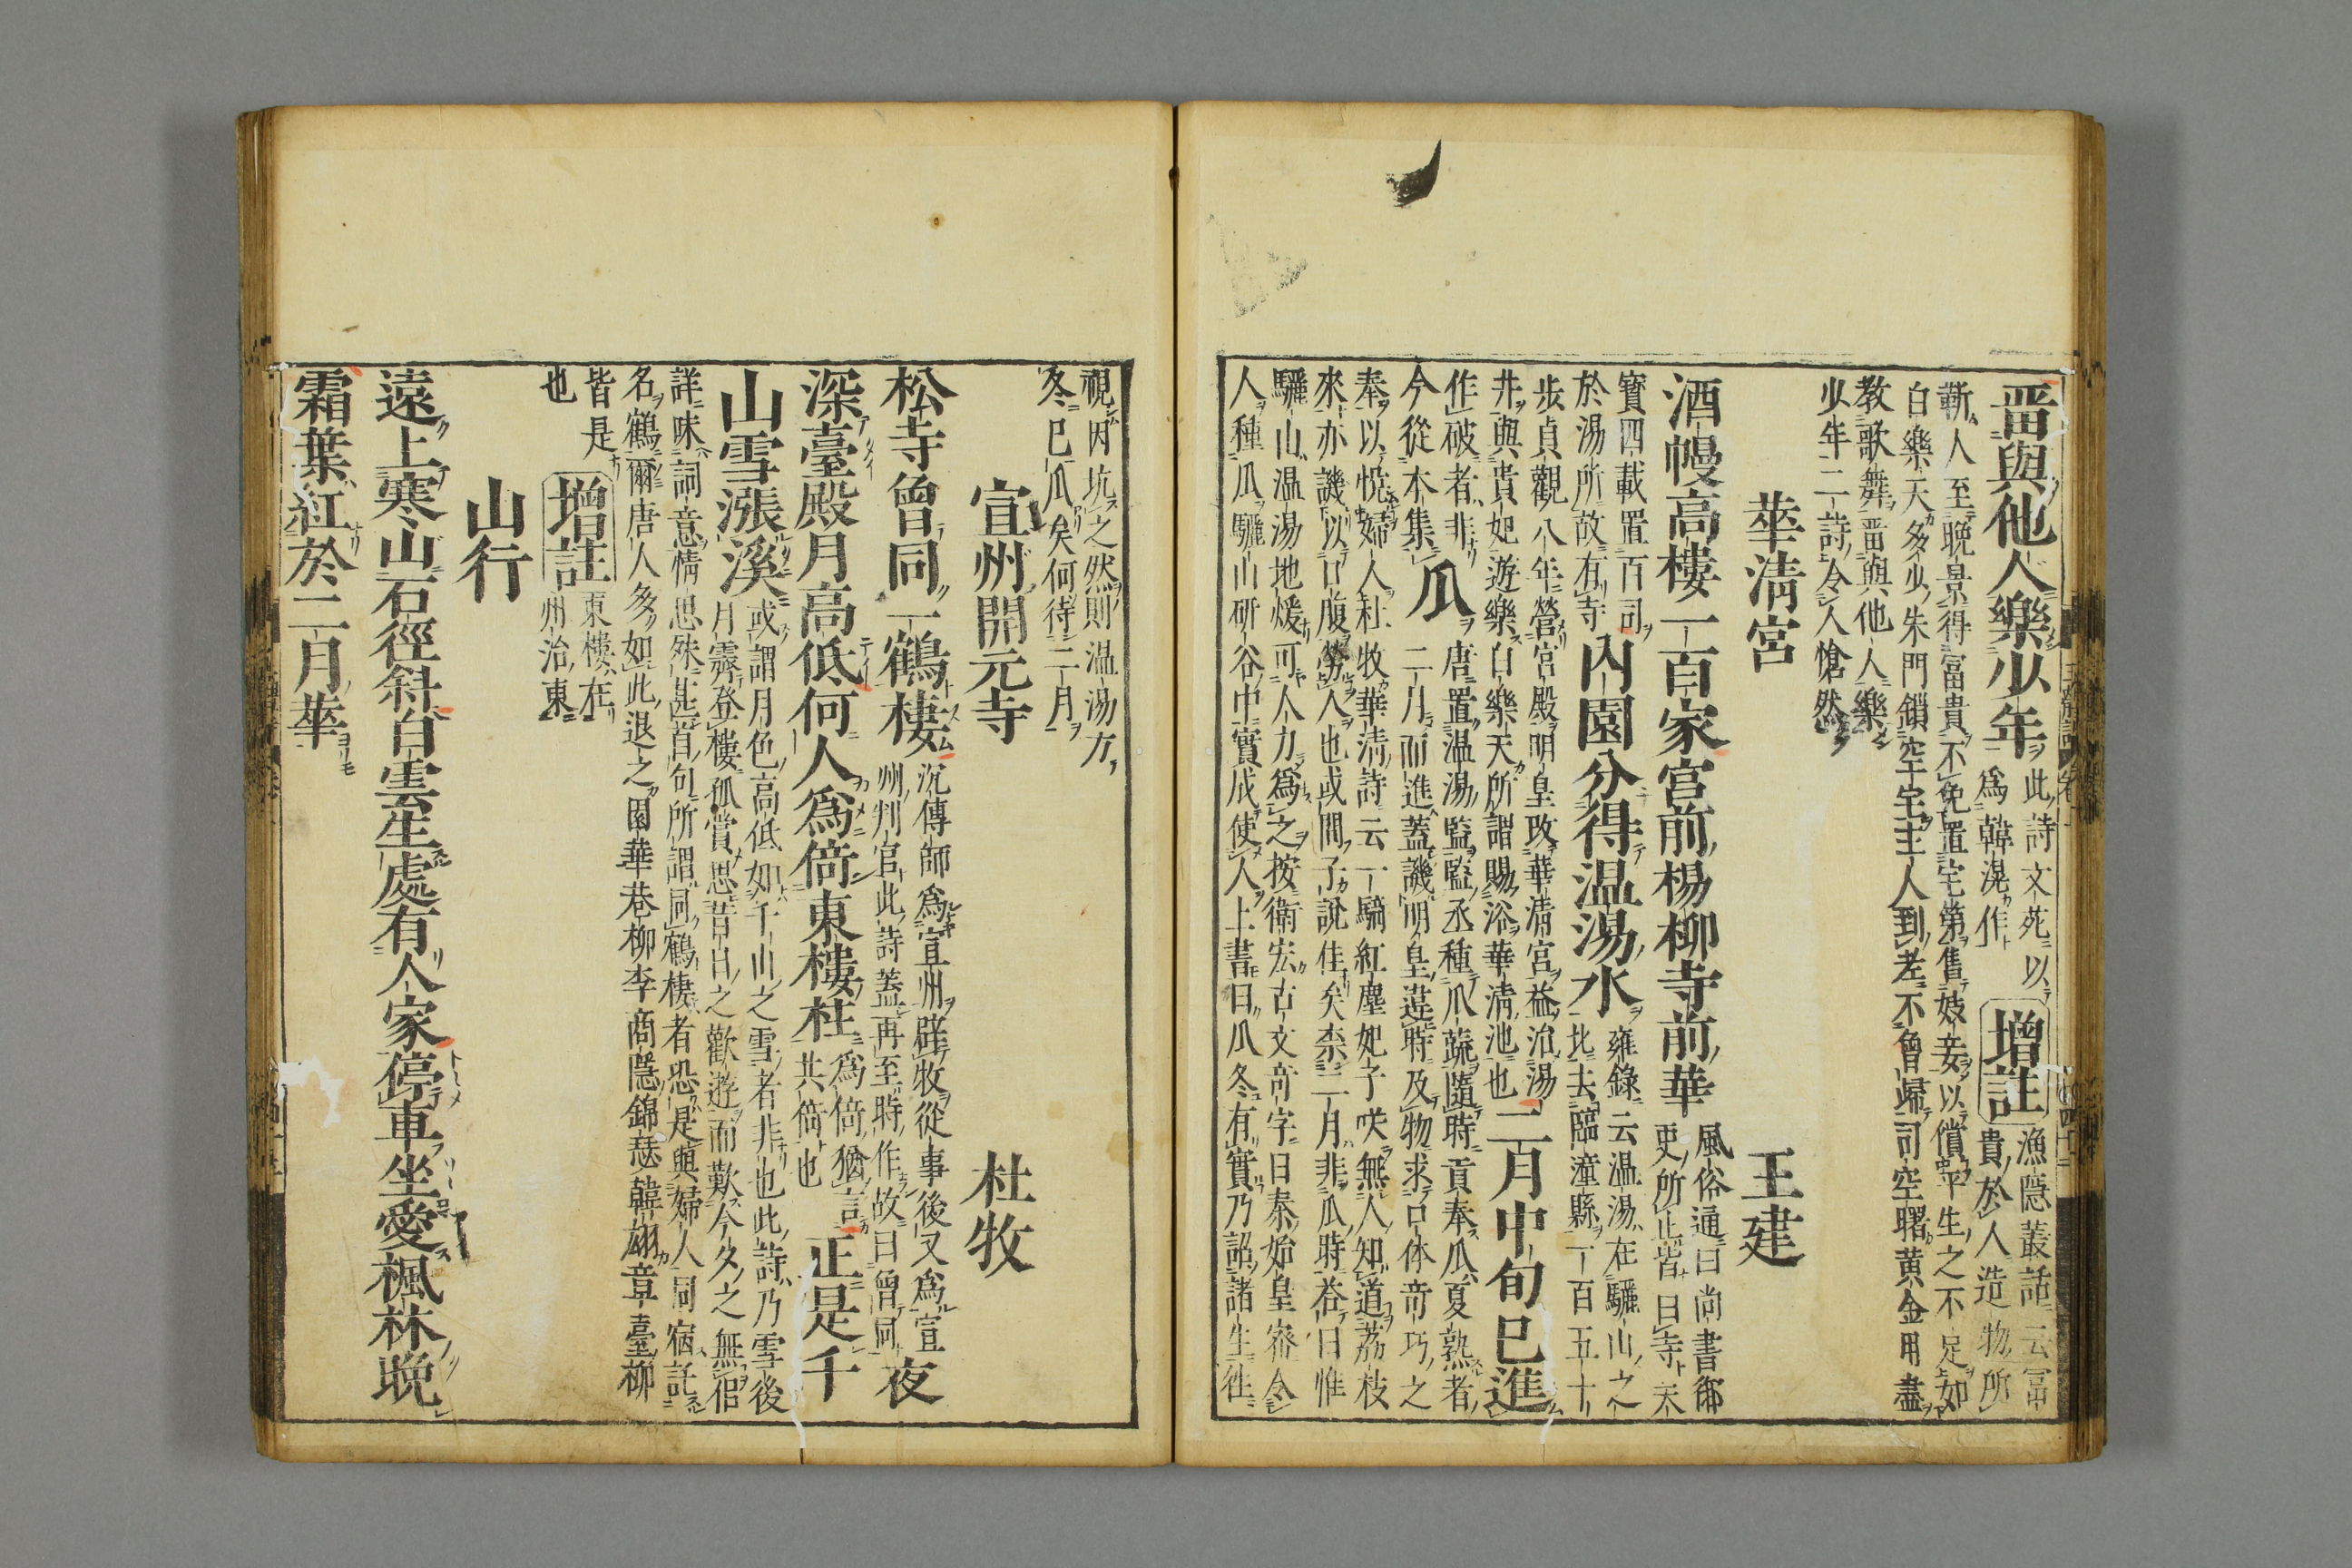 畱與他人樂少年
此詩文苑以
爲韓滉作
增註
漁隱叢話云冨
貴於人造物所
靳人至晚景得富貴不免置宅第售妓妾以償平生之不足如
白樂天多少朱門鎖空宅主人到老不曾歸司空曙黄金用盡
教歌舞畱與他人樂
少年二詩令人愴然
華清宮
王建
酒幔高樓一百家宮前楊柳寺前華
風俗通曰尚書御
史所止皆曰寺天
寳四載置百司
於湯所故有寺
內園分得温湯水
雍錄云温湯在驪山之
北去臨潼縣一百五十
步貞觀八年營宮殿明皇改華清宮益治湯
井與貴妃遊樂白樂天所謂賜浴華清池也
二月中旬已進
作破者非
今從木集
瓜
唐置温湯監監丞種瓜蔬隨時貢奉瓜夏熟者
二月而進蓋譏明皇違時及物求口体竒巧之
奉以悅婦人杜牧華清詩云一騎紅塵妃子咲無人知道荔枝
來亦譏以口腹勞人也或間子說佳矣柰二月非瓜時荅曰惟
驪山温湯地煖可人力爲之按衛宏古文竒字曰秦始皇宻令
人種瓜驪山研谷中實成使人上書曰瓜冬有實乃詔諸生徃
視因坑之然則温湯方
冬已瓜矣何待二月
宣州開元寺
杜牧
松寺曾同一鶴棲
沉傳師爲宣州辟牧從事後又爲宣
州判官此詩蓋再至時作故曰曾同
夜
深臺殿月高低何人爲倚東樓柱
爲倚猶言
共倚也
正是千
山雪漲溪
或謂月色高低如千山之雪者非也此詩乃雪後
月霽登樓孤賞思昔日之歡遊而歎今夕之無侶
詳味詞意情思殊甚首句所謂同鶴棲者恐是與婦人同宿託
名鶴爾唐人多如此退之園華巷柳李商隱錦瑟韓翃章臺柳
皆是
也
增註
東樓在
州治東
山行
遠上寒山石徑斜白雲生處有人家停車坐愛楓林晚
霜葉紅於二月華